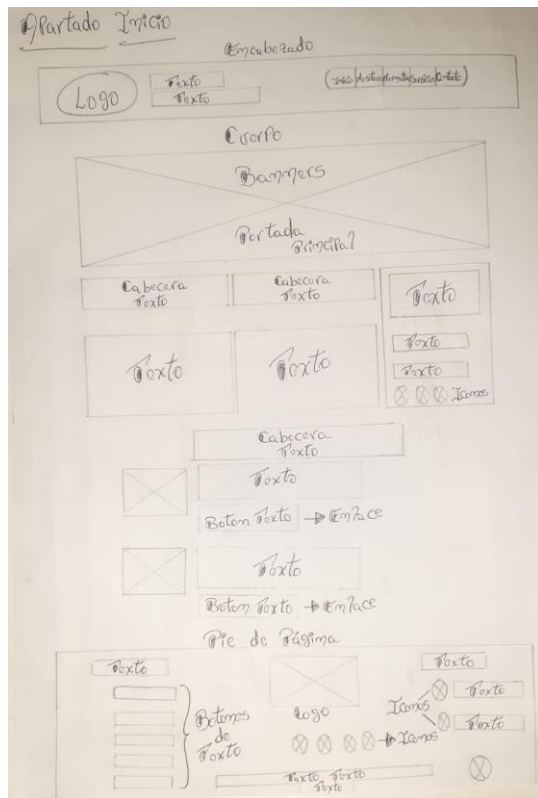 Apartado Inicio
Encabezado
Logo
Texto
Texto
Contacto
Cuerpo
Banners
Portada
Principal
Cabecera
Texto
Cabecera
Texto
Texto
Texto
Texto
Texto
Texto
Iconos
Cabecera
Texto
Texto
Boton Texto → Enlace
Texto
Boton Texto → Enlace
Pie de Página
Texto
Botones
de
Texto
Logo
Iconos
Texto
Iconos
Texto
Texto
Texto Texto
Texto